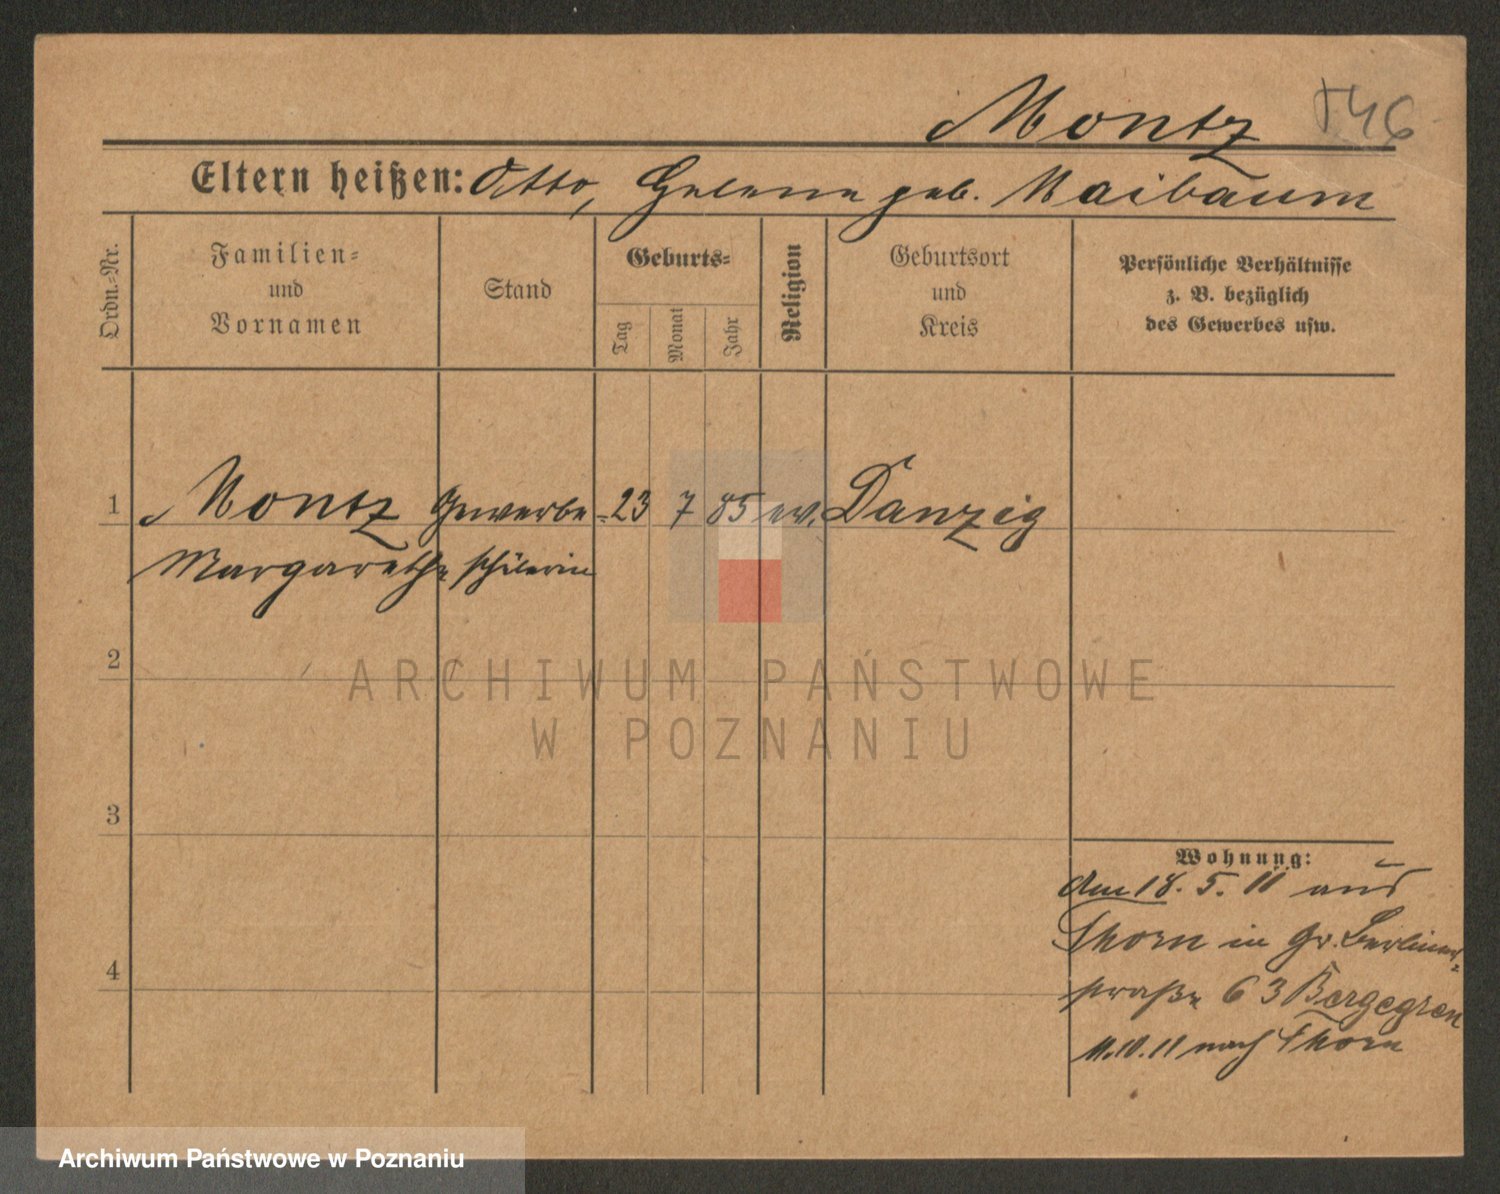 Montz 546
Eltern heißen: Otto, Helene geb. Maibaum
Ordn.-Nr.
Familien-
und
Vornamen
Stand
Geburts-
Tag
Monat
Jahr
Religion
Geburtsort
und
Kreis
Persönliche Verhältnisse
z. B. bezüglich
des Gewerbes usw.
1 Montz Gewerbe- 23 7 85 ev. Danzig
Margarethe schülerin
2
ARCHIWUM PAŃSTWOWE
W POZNANIU
3
Wohnung:
Am 18. 5. 11 aus
Thorn in Gr. Berliner-
4
straße 63 Bergegren
11.10.11 nach Thorn
Archiwum Państwowe w Poznaniu